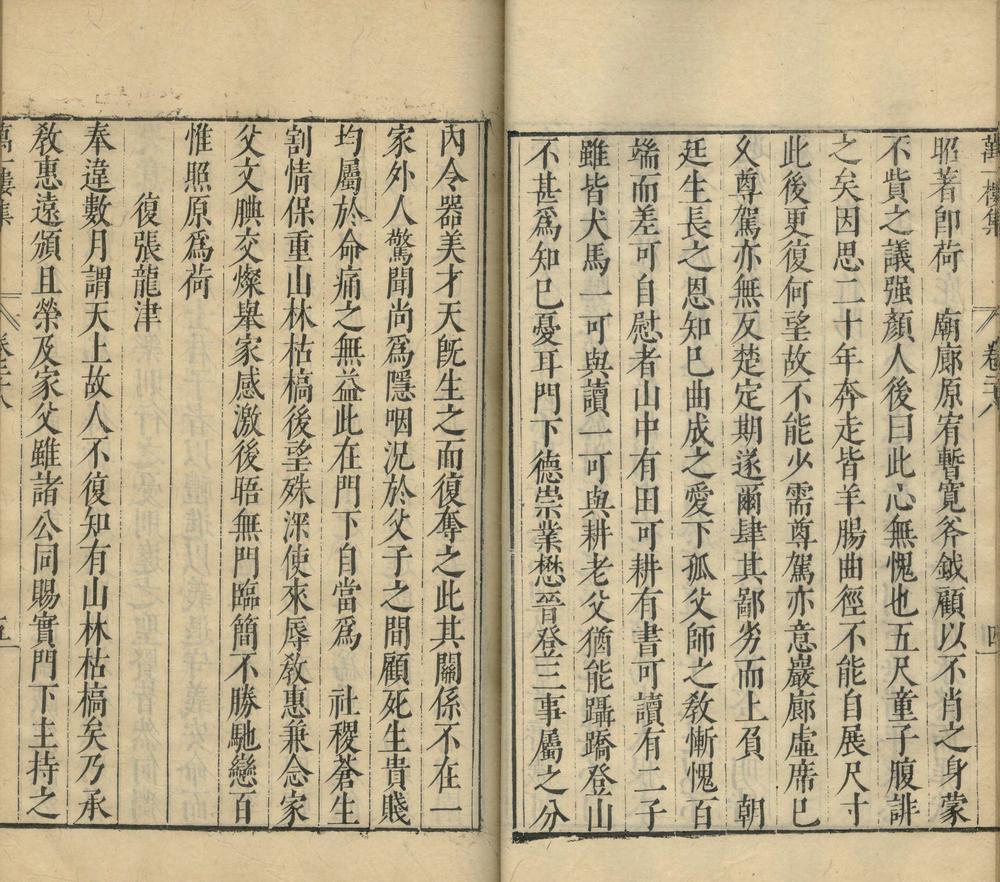 萬一樓集 卷三十八 四
昭著卽荷 廟廊原宥暫寬斧鉞顧以不肖之身蒙
不貲之議强顏人後曰此心無愧也五尺童子腹誹
之矣因思二十年奔走皆羊腸曲徑不能自展尺寸
此後更復何望故不能少需尊駕亦意巖廊虛席已
久尊駕亦無反楚定期遂爾肆其鄙劣而上負 朝
廷生長之恩知巳曲成之愛下孤父師之敎慚愧百
端而差可自慰者山中有田可耕有書可讀有二子
雖皆犬馬一可與讀一可與耕老父猶能躡蹻登山
不甚爲知巳憂耳門下德崇業懋晉登三事屬之分
內令器美才天旣生之而復奪之此其關係不在一
家外人驚聞尚爲隱咽況於父子之間顧死生貴賤
均屬於命痛之無益此在門下自當爲 社稷蒼生
割情保重山林枯槁後望殊深使來辱敎惠兼念家
父文腆交燦舉家感激後晤無門臨簡不勝馳戀百
惟照原爲荷
復張龍津
奉違數月謂天上故人不復知有山林枯槁矣乃承
敎惠遠頒且榮及家父雖諸公同賜實門下主持之
萬一樓集 卷三十八 五